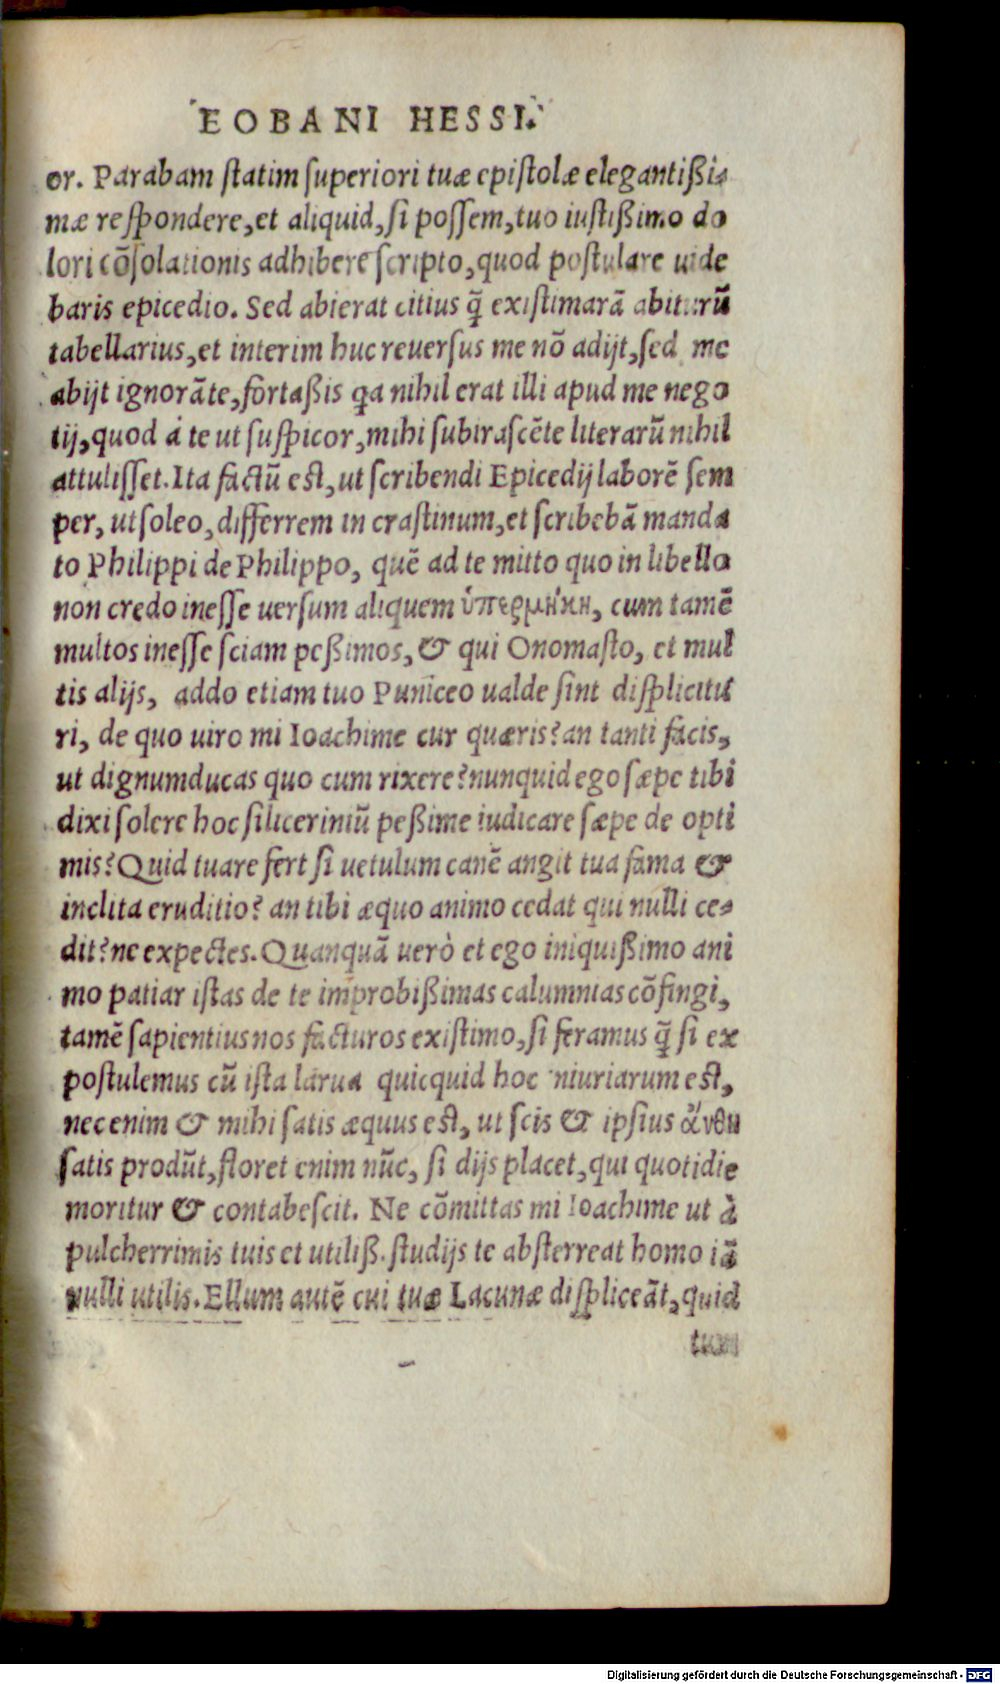 EOBANI HESSI.
or. Parabam statim superiori tuæ epistolæ elegantißi⸗
mæ respondere, et aliquid, si possem, tuo iustißimo do
lori cõsolationis adhibere scripto, quod postulare uide
baris epicedio. Sed abierat citius q̃ existimarã abiturũ
tabellarius, et interim huc reuersus me nõ adijt, sed me
abijt ignorãte, fortaßis qa nihil erat illi apud me nego
tij, quod á te ut suspicor, mihi subirascẽte literarũ nihil
attulisset. Ita factũ est, ut scribendi Epicedij laborẽ sem
per, ut soleo, differrem in crastinum, et scribebã manda
to Philippi de Philippo, quẽ ad te mitto quo in libello
non credo inesse uersum aliquem ὑπερμήκη, cum tamẽ
multos inesse sciam peßimos, & qui Onomasto, et mul
tis alijs, addo etiam tuo Puniceo ualde sint displicitu
ri, de quo uiro mi Ioachime cur quæris? an tanti facis,
ut dignum ducas quo cum rixere? nunquid ego sæpe tibi
dixi solere hoc siliceriniũ peßime iudicare sæpe de opti
mis? Quid tua refert si uetulum canẽ angit tua fama &
inclita eruditio? an tibi æquo animo cedat qui nulli ce⸗
dit? ne expectes. Quanquã uerò et ego iniquißimo ani
mo patiar istas de te improbißimas calumnias cõfingi,
tamẽ sapientius nos facturos existimo, si feramus q̃ si ex
postulemus cũ ista larua quicquid hoc niuriarum est,
nec enim & mihi satis æquus est, ut scis & ipsius ἄνθη
satis produ̅t, floret enim nũc, si dijs placet, qui quotidie
moritur & contabescit. Ne cõmittas mi Ioachime ut à
pulcherrimis tuis et utiliß. studijs te absterreat homo iã
nulli utilis. Ellum autẽ cui tuæ Lacunæ displiceãt, quid
tum